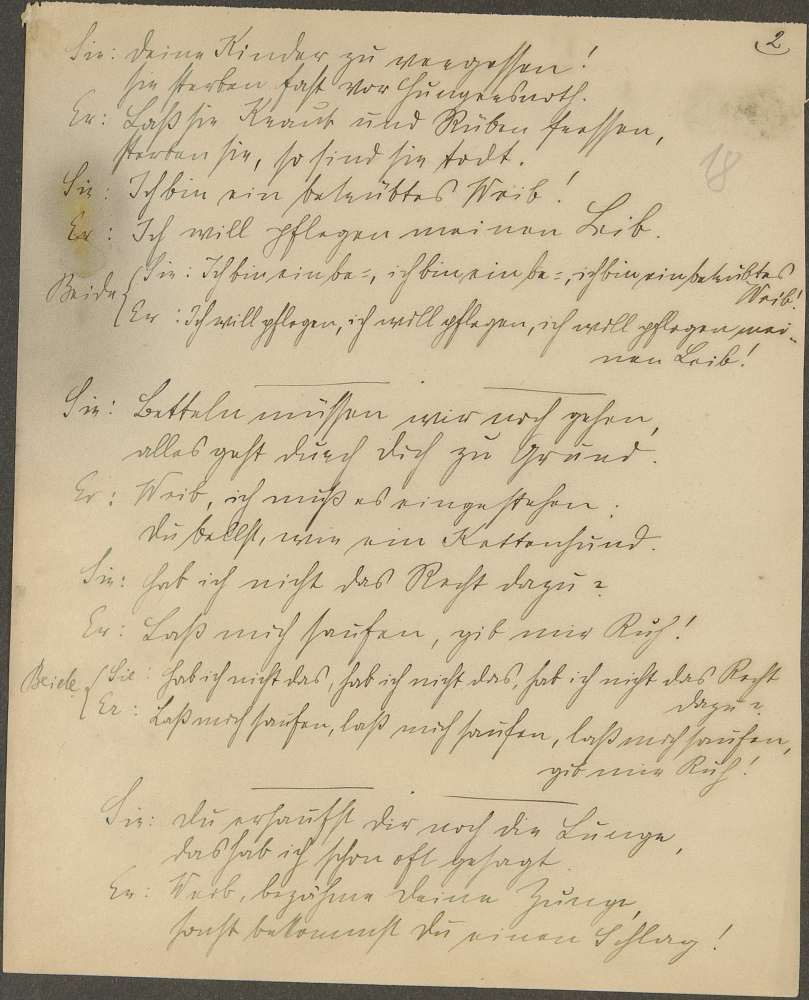 2
Sie: Deine Kinder zu vergessen!
Sie sterben fast vor Hungersnoth.
Er: Laß sie Kraut und Rüben fressen,
sterben sie, so sind sie todt.
18
Sie: Ich bin ein betrübtes Weib!
Er: Ich will pflegen meinen Leib.
Beide { Sie: Ich bin ein be=, ich bin ein be=, ich bin ein betrübtes
Weib!
Er: Ich will pflegen, ich will pflegen, ich will pflegen mei-
nen Leib!
Sie: Betteln müssen wir noch gehen,
alles geht durch Dich zu Grund.
Er: Weib, ich muß es eingestehen:
Du bellst, wie ein Kettenhund.
Sie: Hab ich nicht das Recht dazu?
Er: Laß mich saufen, gib mir Ruh!
Beide { Sie: Hab ich nicht das, hab ich nicht das, hab ich nicht das Recht
dazu?
Er: Laß mich saufen, laß mich saufen, laß mich saufen,
gib mir Ruh!
Sie: Du ersaufst dir noch die Lunge,
das hab ich schon oft gesagt.
Er: Weib, bezähme Deine Zunge,
sonst bekommst Du einen Schlag!